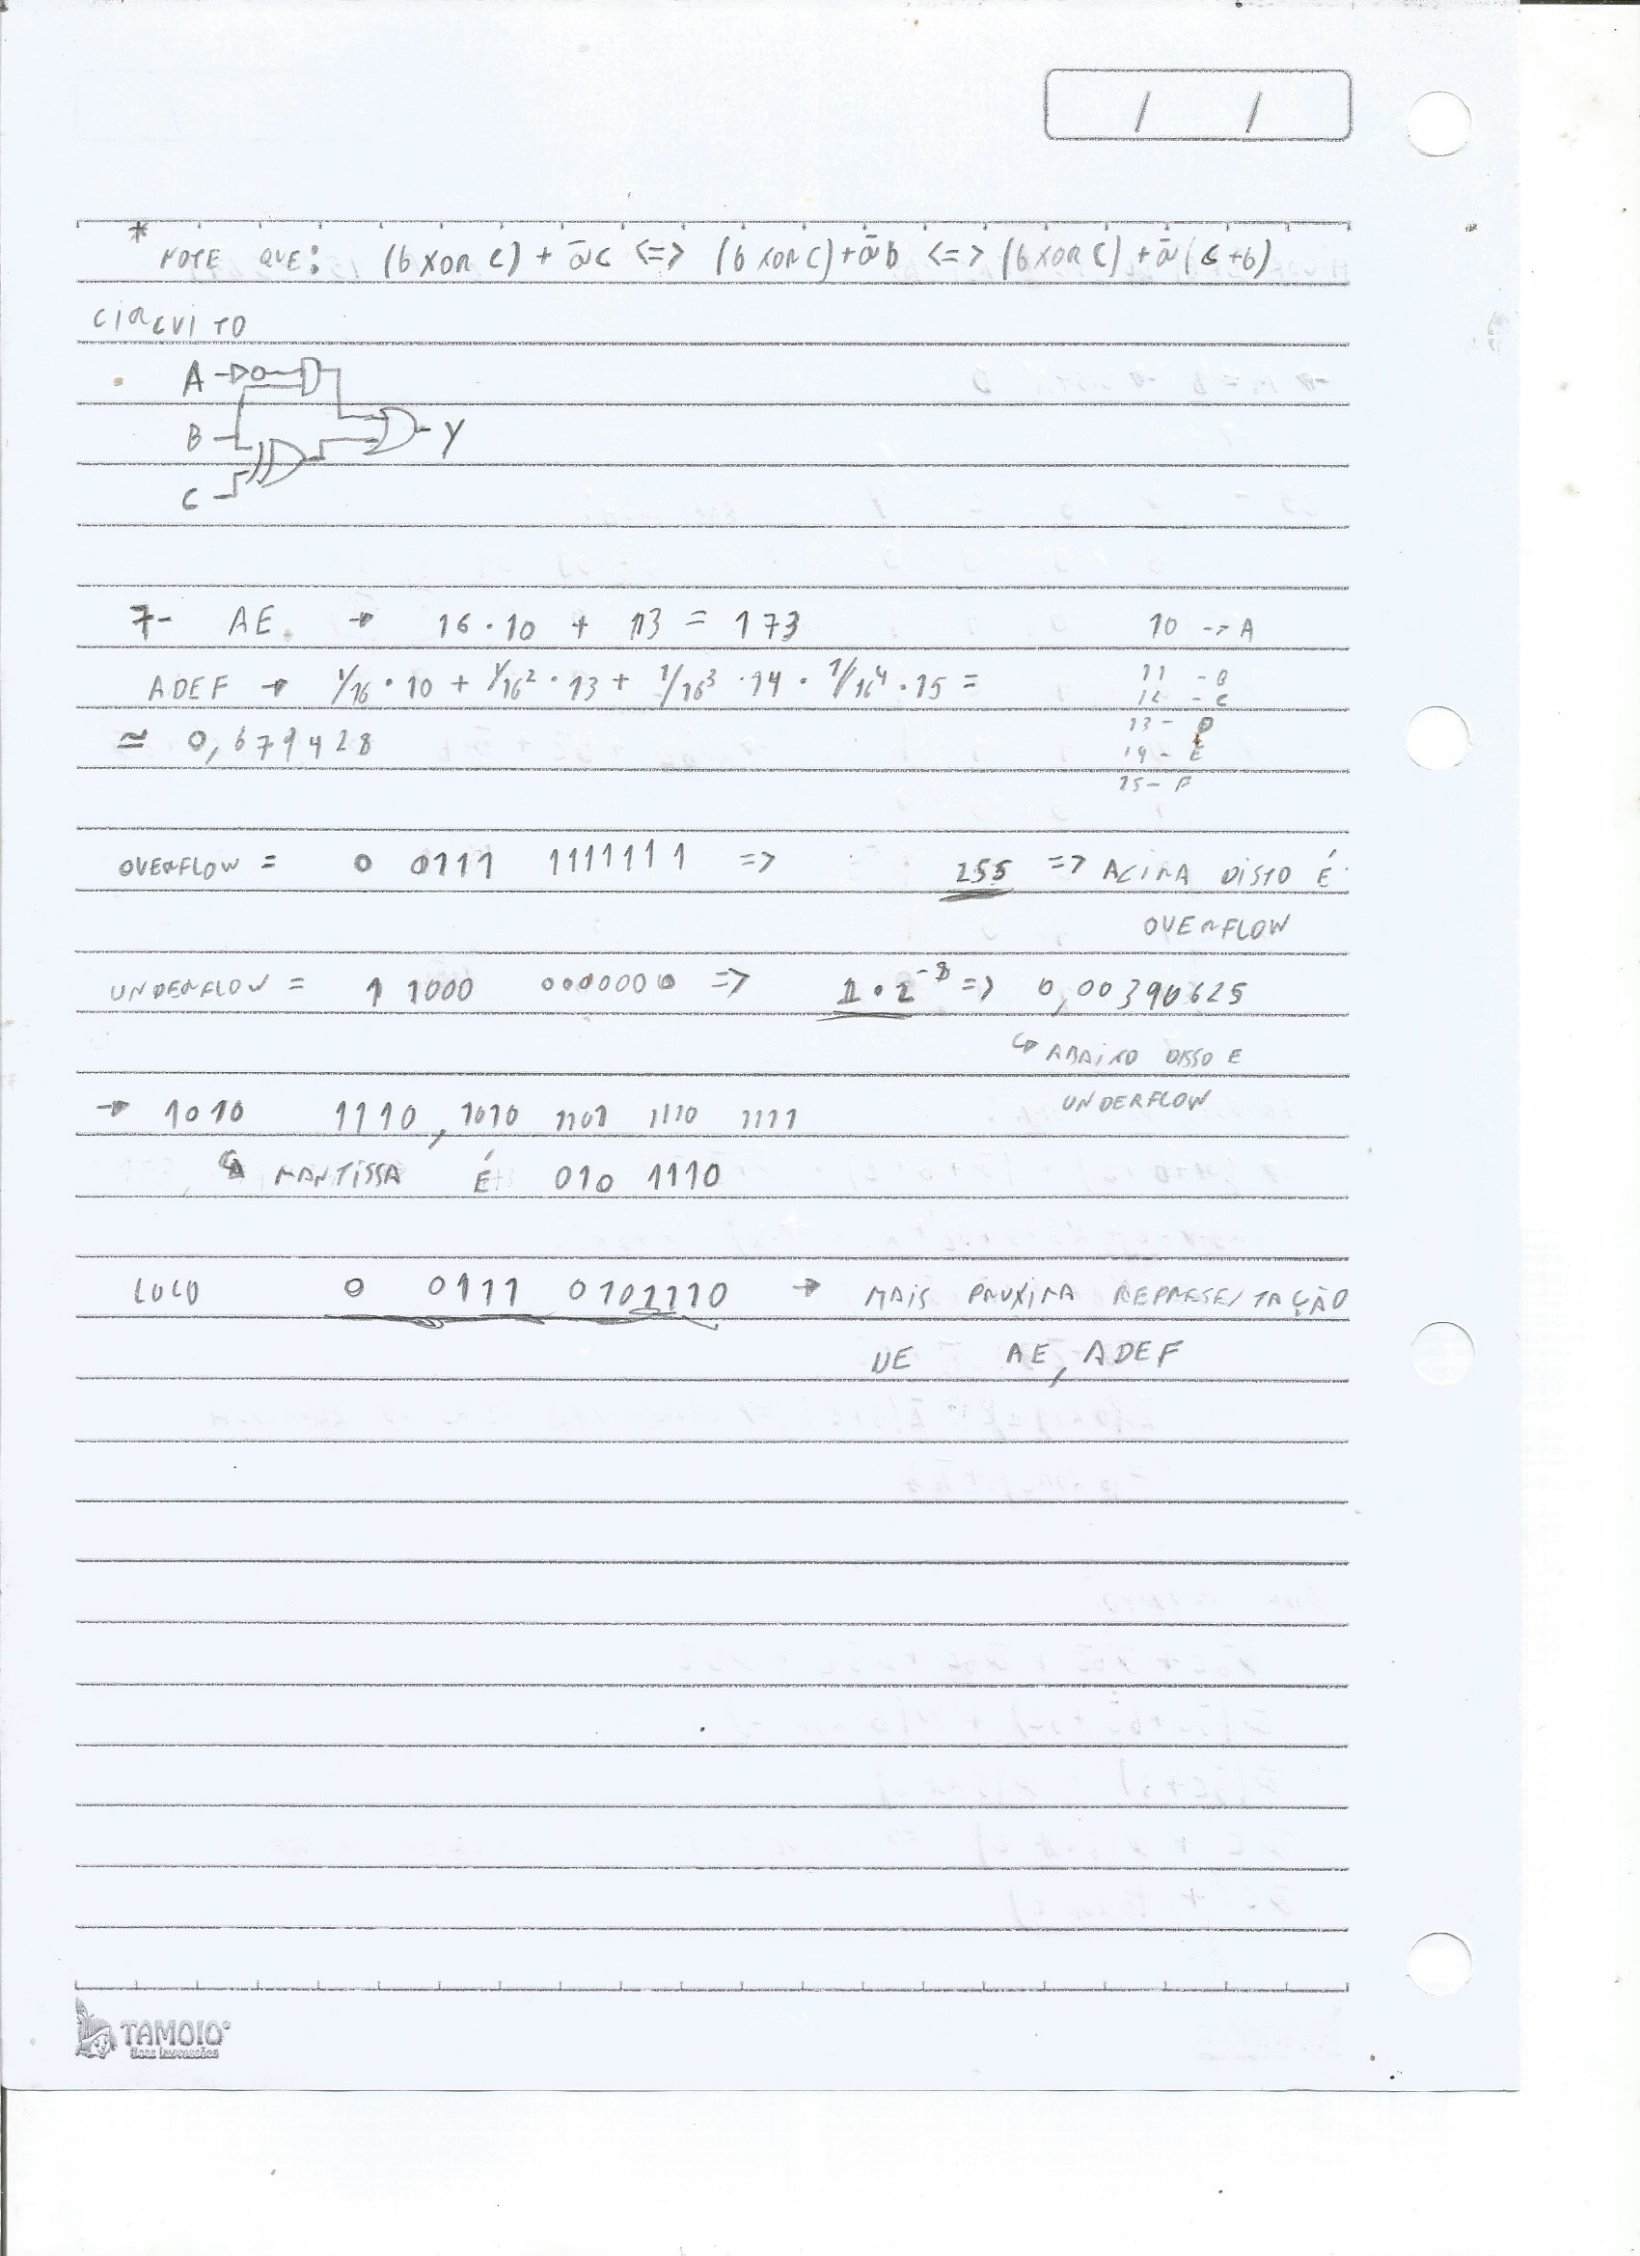 / /
* NOTE QUE: (b XOR C) + āc <=> (b XOR C) + āb <=> (b XOR C) + ā(c+b)
CIRCUITO
A
B Y
C
7- AE → 16·10 + 13 = 173 10 -> A
ADEF → 1/16·10 + 1/16²·13 + 1/16³·14 · 1/16⁴·15 = 11 - B
12 - C
≅ 0,679428 13 - D
14 - E
15 - F
OVERFLOW = 0 0111 1111111 => 255 => ACIMA DISTO É
OVERFLOW
UNDERFLOW = 1 1000 0000000 => 1·2⁻⁸ => 0,00390625
↳ ABAIXO DISSO E
UNDERFLOW
→ 1010 1110, 1010 1101 1110 1111
↳ MANTISSA É 010 1110
LOGO 0 0111 0101110 → MAIS PROXIMA REPRESETAÇÃO
DE AE, ADEF
TAMOIO
Boas Impressões